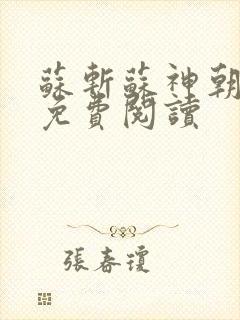 蘇斬蘇神朝
免費閱讀
張春瓊